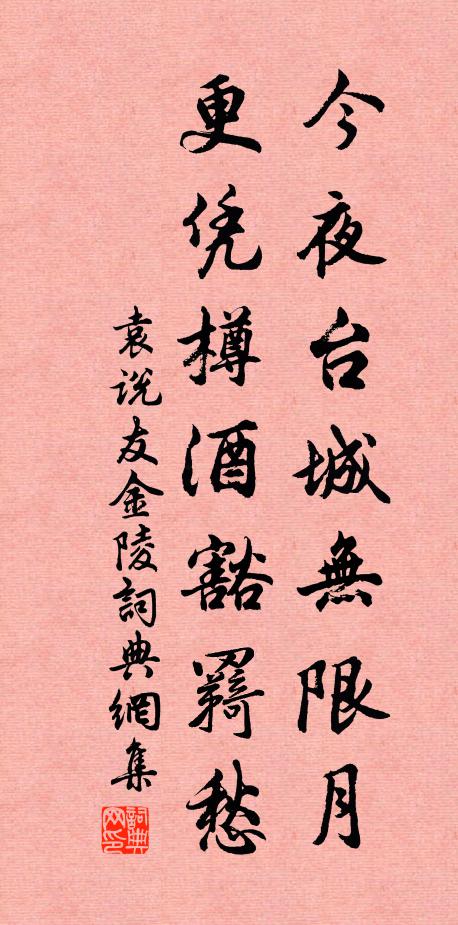 今夜台城無限月
更凭樽酒豁羇愁
袁说友金陵詞典網集
詞典网印